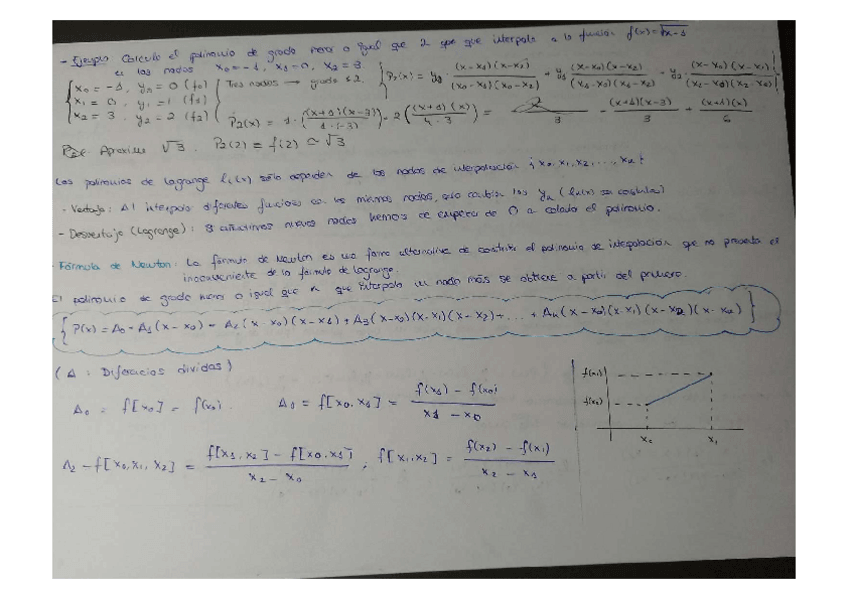 - Ejemplo Calcula el polinomio de grado menor o igual que 2 que que interpola a la función f(x)=√x-1
en los nodos x₀=-1, x₁=0, x₂=3
{x₀=-1, y₀=0 (f₀)
x₁=0, y₁=1 (f₁)
x₂=3, y₂=2 (f₂)} Tres nodos → grado ≤2. {P₂(x)= y₀ · (x-x₁)(x-x₂)/(x₀-x₁)(x₀-x₂) + y₁ (x-x₀)(x-x₂)/(x₁-x₀)(x₁-x₂) + y₂ (x-x₀)(x-x₁)/(x₂-x₀)(x₂-x₁)}
P₂(x)= 1·((x+1)(x-3)/1·(-3)) - 2((x+1)(x)/4·3) = -(x+1)(x-3)/3 + (x+1)(x)/6
Aproxime √3. P₂(2)=f(2)≃√3
Los polinomios de Lagrange lᵢ(x) sólo dependen de los nodos de interpolación {x₀,x₁,x₂,...,xₙ}
- Ventaja: Al interpolar diferentes funciones en los mismos nodos, sólo cambian los yₙ
- Desventaja (Lagrange): Si añadimos nuevos nodos hemos de empezar de 0 a calcular el polinomio.
- Fórmula de Newton: La fórmula de Newton es una forma alternativa de construir el polinomio de interpolación que no presenta el
inconveniente de la fórmula de Lagrange.
El polinomio de grado menor o igual que n que interpola un nodo más se obtiene a partir del primero.
{P(x)=A₀-A₁(x-x₀)-A₂(x-x₀)(x-x₁)+A₃(x-x₀)(x-x₁)(x-x₂)+...+Aₙ(x-x₀)(x-x₁)(x-x₂)(x-xₙ)}
(A: Diferencias divididas)
A₀=f[x₀]=f(x₀). A₀=f[x₀,x₁]= f(x₁)-f(x₀)/x₁-x₀
A₂-f[x₀,x₁,x₂]= f[x₁,x₂]-f[x₀,x₁]/x₂-x₀ ; f[x₁,x₂]= f(x₂)-f(x₁)/x₂-x₁
f(x₁)
f(x₀)
x₀ x₁